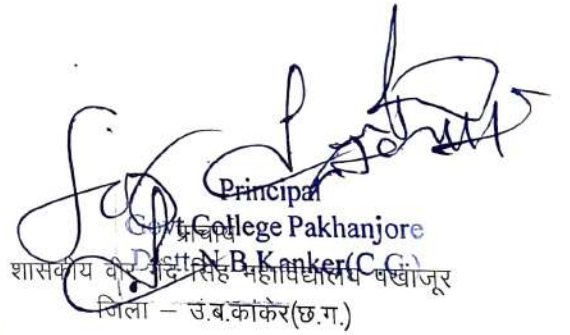 Principal
Govt. College Pakhanjore
प्राचार्य
Distt. N.B. Kanker (C.G.)
शासकीय वीर सिंह महाविद्यालय पखांजूर
जिला – उ.ब.कांकेर(छ.ग.)